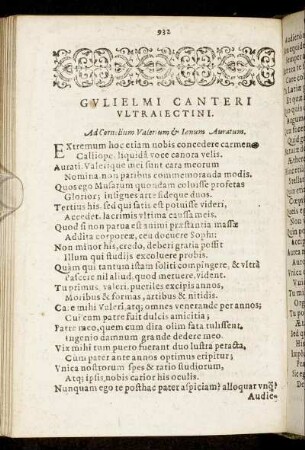 932
GVLIELMI CANTERI
VLTRAIECTINI.
Ad Cornelium Valerium & Ianum Auratum.
EXtremum hoc etiam nobis concedere carmen
Calliope, liquida voce canora velis.
Aurati, Valerique mei sunt cara meorum
Nomina non paribus commemoranda modis.
Quos ego Musarum quondam coluisse profetas
Glorior; insignes arte fideque duos.
Tertius his, sed qui fatis est potuisse videri,
Accedet, lacrimis vltima caussa meis.
Quod si non parua est animi præstantia massæ
Addita corporeæ, ceu docuere Sophi;
Non minor his, credo, deberi gratia possit
Illum qui studijs excoluere probis.
Quàm qui tantum istam soliti compingere, & vltrà
Pascere nil aliud, quod metuere, vident.
Tu primus, Valeri, pueriles excipis annos,
Moribus & formas, artibus & nitidis.
Care mihi Valeri, atq; omnes venerande per annos;
Cui cum patre fuit dulcis amicitia;
Patre meo, quem cum dira olim fata tulissent,
Ingenio damnum grande dedere meo.
Vix mihi tum puero fuerant duo lustra peracta,
Cùm pater ante annos optimus eripitur;
Vnica nostrorum spes & ratio studiorum,
Atq; ipsis nobis carior his oculis.
Nunquam ego te posthac pater aspiciam? alloquar vnq̃?
Audie-